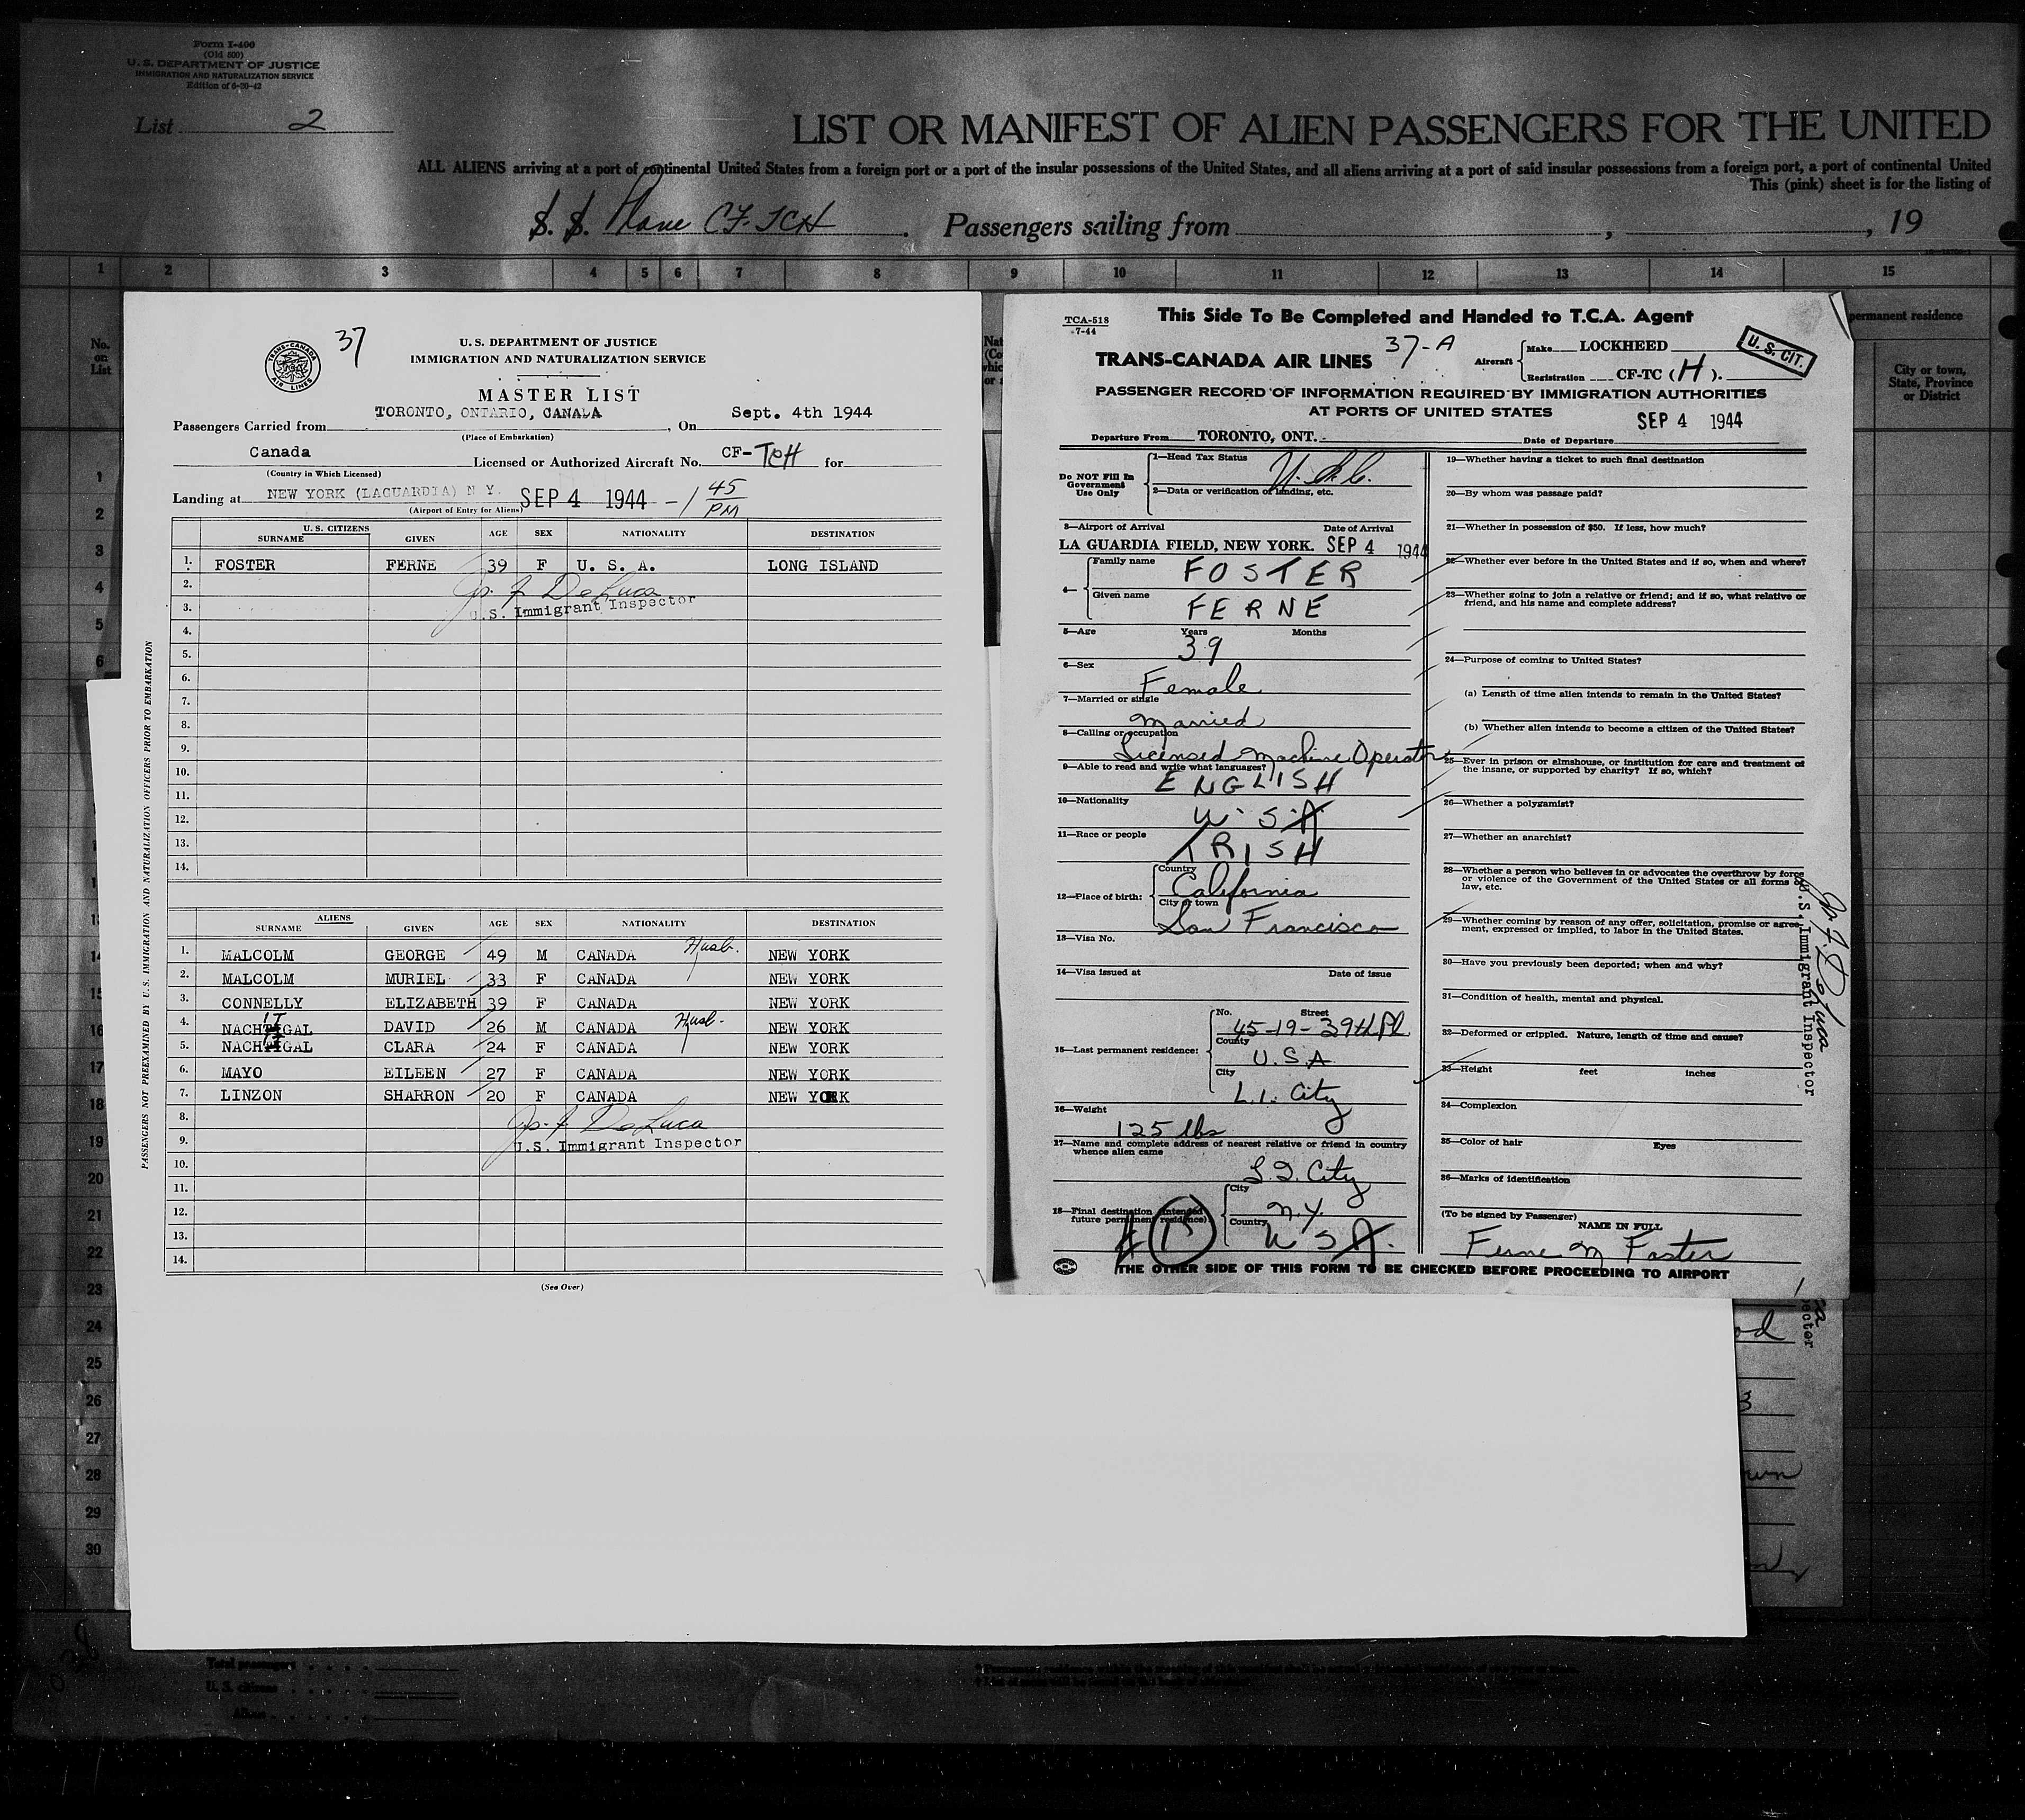 Form I-400
(Old 500)
U. S. DEPARTMENT OF JUSTICE
IMMIGRATION AND NATURALIZATION SERVICE
Edition of 6-20-42
List 2
LIST OR MANIFEST OF ALIEN PASSENGERS FOR THE UNITED
ALL ALIENS arriving at a port of continental United States from a foreign port or a port of the insular possessions of the United States, and all aliens arriving at a port of said insular possessions from a foreign port, a port of continental United
This (pink) sheet is for the listing of
S. S. Plane CF-TCH. Passengers sailing from , , 19
1 2 3 4 5 6 7 8 9 10 11 12 13 14 15
No. on List
permanent residence
City or town, State, Province or District
37
TRANS-CANADA AIR LINES
U. S. DEPARTMENT OF JUSTICE
IMMIGRATION AND NATURALIZATION SERVICE
MASTER LIST
Passengers Carried from TORONTO, ONTARIO, CANADA, On Sept. 4th 1944
(Place of Embarkation)
Canada Licensed or Authorized Aircraft No. CF-TCH for
(Country in Which Licensed)
Landing at NEW YORK (LAGUARDIA) N Y. SEP 4 1944 - 1 45 PM
(Airport of Entry for Aliens)
U. S. CITIZENS
SURNAME GIVEN AGE SEX NATIONALITY DESTINATION
1. FOSTER FERNE 39 F U. S. A. LONG ISLAND
2.
3.
Jos. F. DeLuca
U.S. Immigrant Inspector
4.
5.
6.
7.
8.
9.
10.
11.
12.
13.
14.
ALIENS
SURNAME GIVEN AGE SEX NATIONALITY DESTINATION
1. MALCOLM GEORGE 49 M CANADA Husb. NEW YORK
2. MALCOLM MURIEL 33 F CANADA NEW YORK
3. CONNELLY ELIZABETH 39 F CANADA NEW YORK
4. NACHTIGAL DAVID 26 M CANADA Husb. NEW YORK
5. NACHTIGAL CLARA 24 F CANADA NEW YORK
6. MAYO EILEEN 27 F CANADA NEW YORK
7. LINZON SHARRON 20 F CANADA NEW YORK
8.
9.
Jos. F. DeLuca
U.S. Immigrant Inspector
10.
11.
12.
13.
14.
(See Over)
PASSENGERS NOT PREEXAMINED BY U.S. IMMIGRATION AND NATURALIZATION OFFICERS PRIOR TO EMBARKATION
TCA-518
7-44
This Side To Be Completed and Handed to T.C.A. Agent
TRANS-CANADA AIR LINES 37-A
Aircraft Make LOCKHEED
Registration CF-TC (H).
U. S. CIT.
PASSENGER RECORD OF INFORMATION REQUIRED BY IMMIGRATION AUTHORITIES
AT PORTS OF UNITED STATES
SEP 4 1944
Departure From TORONTO, ONT. Date of Departure
Do NOT Fill In Government Use Only
1—Head Tax Status
2—Data or verification of landing, etc.
3—Airport of Arrival Date of Arrival
LA GUARDIA FIELD, NEW YORK. SEP 4 1944
4— Family name FOSTER
Given name FERNE
5—Age Years Months
39
6—Sex
Female
7—Married or single
Married
8—Calling or occupation
Licensed Machine Operator
9—Able to read and write what languages?
ENGLISH
10—Nationality
U.S.A
11—Race or people
IRISH
12—Place of birth: Country California
City or town San Francisco
13—Visa No.
14—Visa issued at Date of issue
15—Last permanent residence: No. Street
45-19-39th Pl
County
U.S.A
City
L.I. City
16—Weight
125 lbs
17—Name and complete address of nearest relative or friend in country whence alien came
L.I. City
18—Final destination (intended future permanent residence)
City
N.Y.
Country
U S A.
#1
19—Whether having a ticket to such final destination
20—By whom was passage paid?
21—Whether in possession of $50. If less, how much?
22—Whether ever before in the United States and if so, when and where?
23—Whether going to join a relative or friend; and if so, what relative or friend, and his name and complete address?
24—Purpose of coming to United States?
(a) Length of time alien intends to remain in the United States?
(b) Whether alien intends to become a citizen of the United States?
25—Ever in prison or almshouse, or institution for care and treatment of the insane, or supported by charity? If so, which?
26—Whether a polygamist?
27—Whether an anarchist?
28—Whether a person who believes in or advocates the overthrow by force or violence of the Government of the United States or all forms of law, etc.
29—Whether coming by reason of any offer, solicitation, promise or agreement, expressed or implied, to labor in the United States.
30—Have you previously been deported; when and why?
31—Condition of health, mental and physical.
32—Deformed or crippled. Nature, length of time and cause?
33—Height feet inches
34—Complexion
35—Color of hair Eyes
36—Marks of identification
(To be signed by Passenger)
NAME IN FULL
Ferne M Foster
THE OTHER SIDE OF THIS FORM TO BE CHECKED BEFORE PROCEEDING TO AIRPORT
Jos. F. DeLuca
U.S. Immigrant Inspector
1
2
3
4
5
6
16
17
18
19
20
21
22
23
24
25
26
27
28
29
30
Total passengers
U. S. citizens
Aliens